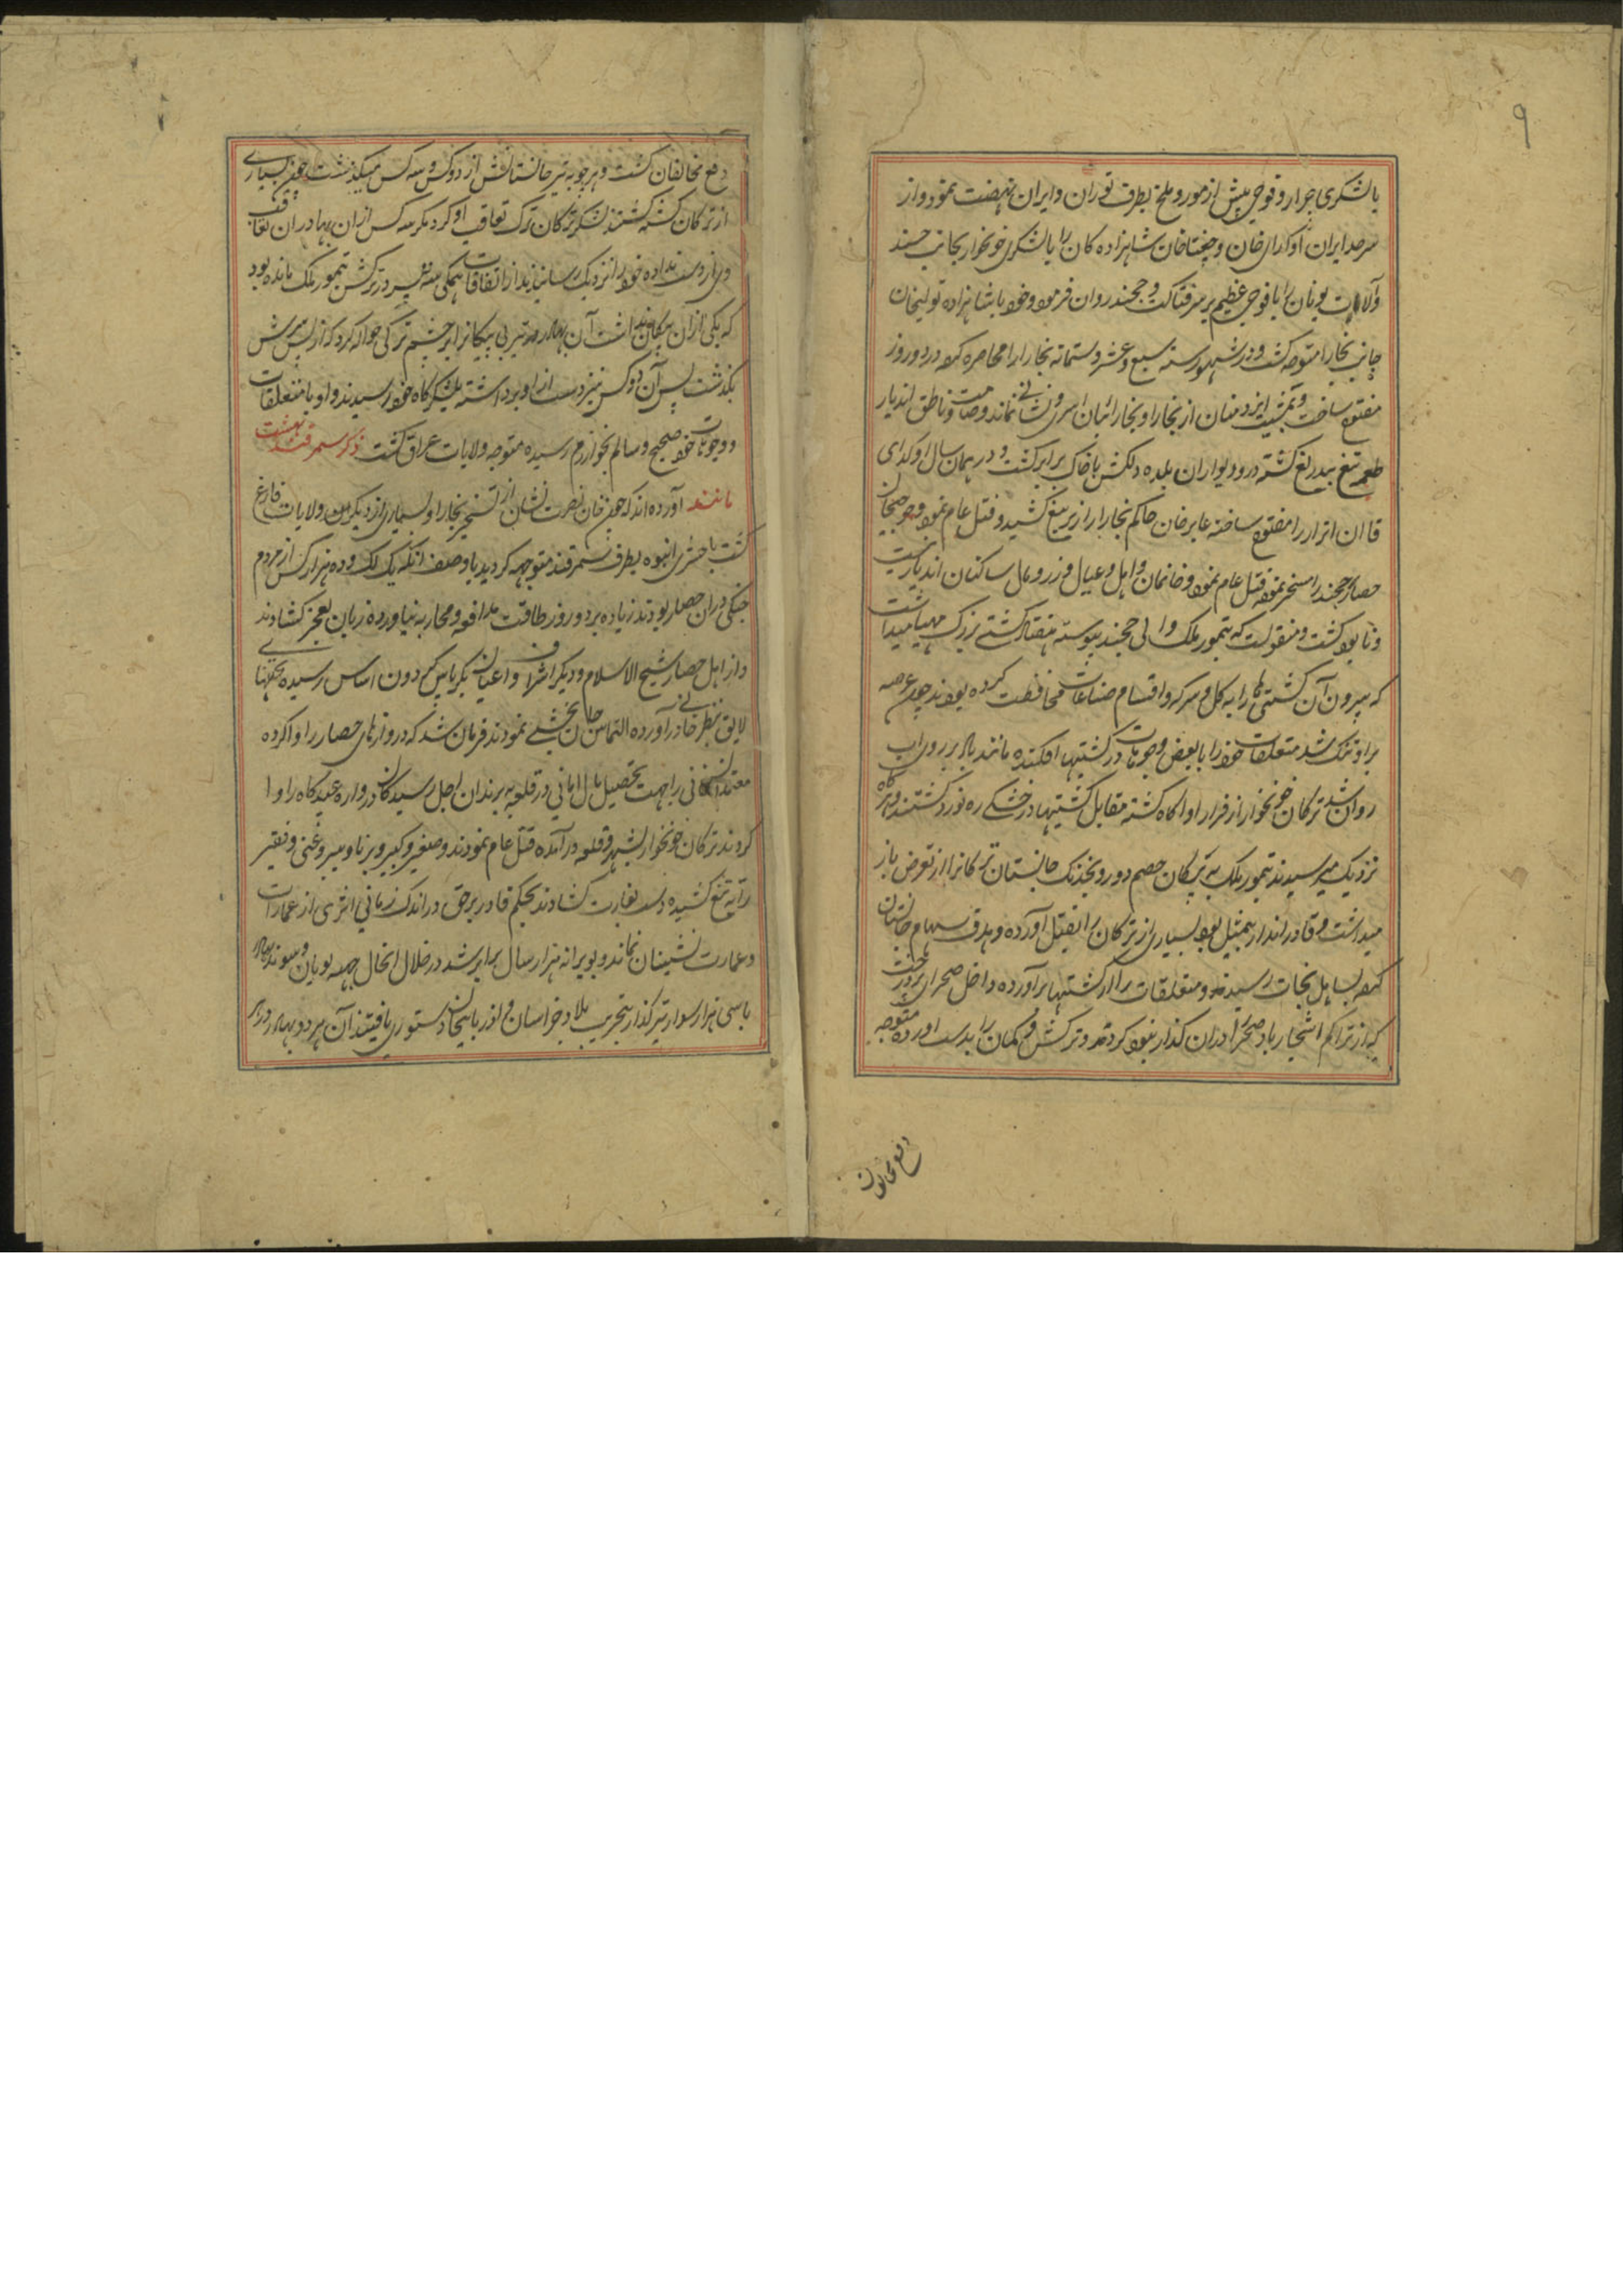 ۹
بالشکری جرار و فوجی بیش از مور و ملخ بطرف توران و ایران نهضت نمود و از
سرحد ایران اوکدای خان و چغتاخان شاهزاده کان را با لشکری خونخوار بجانب جند
و الاق نویان را با فوجی عظیم بر سر فناکت و خجند روان فرموده خود با شاهزاده تولیخان
جانب بخارا متوجه کشت و در شهور سنه سبع و عشر و ستمائه بخارا را محاصره کرده در دو روز
مفتوح ساخت و بمشیت ایزد منان از بخارا و بخارائیان اسمی و نشانی نماند و صامت و ناطق اندیار
طعمه تیغ بیدریغ کشته در و دیواران بلده دلکش با خاک برابر کشت و در همان سال اوکدای
قاان اترار را مفتوح ساخته غایرخان حاکم بخارا را زیر تیغ کشید و قتل عام نموده
حصار خجند را مسخر نموده قتل عام نموده و خانمان و اهل و عیال و زر و مال ساکنان اندیار نیست
و نابود کشت و منقولست که تیمور ملک والی خجند پیوسته هفتاد کشتی بزرک مهیا میداشت
که بیرون آن کشتی ها را به کل و سرکه و اقسام صناعات محافظت کرده بودند چون عرصه
براو تنک شد متعلقات خود را با بعض وجوهات در کشتیها افکنده مانند باد بر روی آب
روان شد ترکان خونخوار از فرار او اکاه کشته مقابل کشتیها در خشکی ره نورد کشتند و هرکاه
نزدیک میرسیدند تیمور ملک به پیکان خصم دوز و بخدنک جانستان ترکانرا از تعرض باز
میداشت و قادر انداز بیمثیل بود بسیاری از ترکان را بقتل آورده و هدف سهام جانستان
کرده بساحل نجات رسیدند و متعلقات را از کشتیها برآورده داخل صحرای پر درخت
که از تراکم اشجار باد صحرا دران کذار نبود کردند و ترکش و کمان را بدست آورده متوجه
دفع مخالفان
دفع مخالفان کشت و هر چوبه تیر جانستانش از دو کس و سه کس میکذشت چون بسیاری
از ترکان کشته کشتند لشکر ترکان ترک تعاقب او کرد مکر سه کس از ان بهادران تعاقب
وی از دست نداده خود را نزدیک رسانیدند از اتفاقات همکی سه تیر در ترکش تیمور ملک مانده بود
که یکی ازان پیکان نداشت آن بهادر تیر بی پیکانرا بر چشم ترکی حواله کرد که از پس سرش
بکذشت پس آن دو کس نیز دست از او برداشته بلشکرکاه خود رسیدند و او با متعلقات
و وجوهات خود صحیح و سالم بخوارزم رسیده متوجه ولایات عراق کشت ذکر سمرقند بهشت
مانند آورده اند که چون خان نصرت نشان از تسخیر بخارا و بسیاری از دیکر مدن و ولایات فارغ
کشت با حشری انبوه بطرف سمرقند متوجه کردید باوصف انکه یک لک و ده هزار کس از مردم
جنکی دران حصار بودند زیاده بر دو روز طاقت مدافعه و محاربه نیاورده زبان بعجز کشادند
و از اهل حصار شیخ الاسلام و دیکر اشراف و اعیان بکریاس کردون اساس رسیده تحفهای
لایق بنظر خانی درآورده التماس جان بخشی نمودند فرمان شد که دروازهای حصار را وا کرده
معتمدان خانی را بجهت تحصیل مال امانی در قلعه برند ان اجل رسیدکان دروازه عیدکاه را وا
کردند ترکان خونخوار بشهر و قلعه درآمده قتل عام نمودند و صغیر و کبیر و برنا و پیر و غنی و فقیر
را به تیغ کشیده دست بغارت کشادند بحکم قادر برحق در اندک زمانی اثری از عمارات
و عمارت نشینان نماند و بویرانه هزار سال برابر شد در خلال انحال جبه نویان و سوبدای بهادر
با سی هزار سوار تیرکذار بتخریب بلاد خراسان و اذربایجان دستوری یافتند آن هر دو بهادر